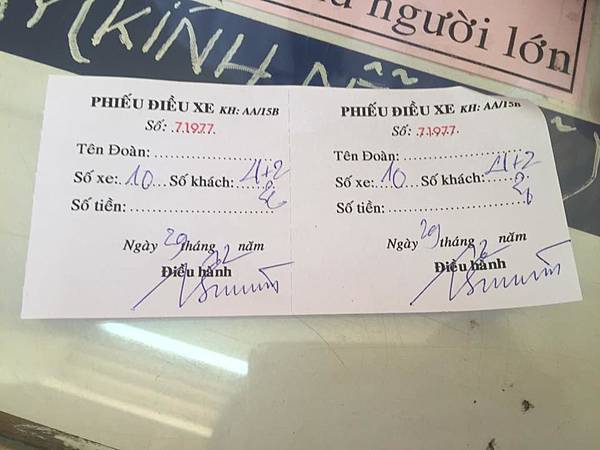 người lớn
(KÍNH
PHIẾU ĐIỀU XE KH: AA/15B
Số: 71977
Tên Đoàn:
Số xe: 10 Số khách: 4+2
Số tiền:
Ngày 29 tháng 2 năm
Điều hành
PHIẾU ĐIỀU XE KH: AA/15B
Số: 71977
Tên Đoàn:
Số xe: 10 Số khách: 4+2
Số tiền:
Ngày 29 tháng 2 năm
Điều hành